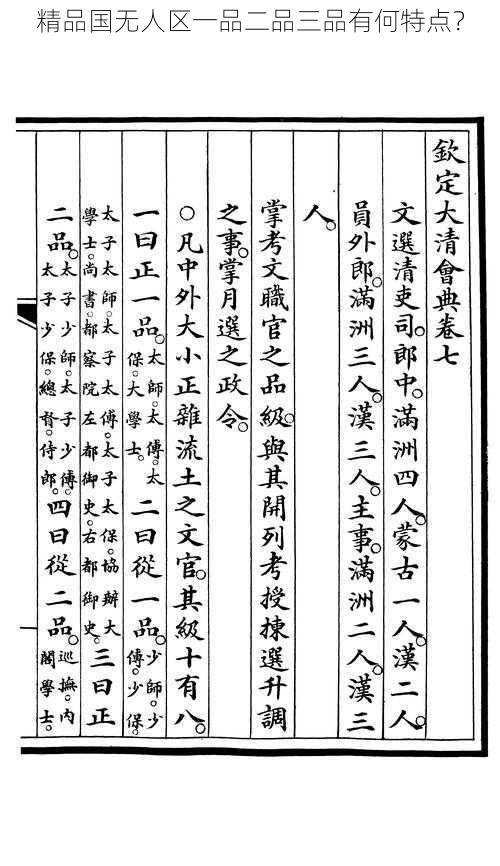 精品国无人区一品二品三品有何特点？
欽定大清會典卷七
文選清吏司。郎中。滿洲四人。蒙古一人。漢二人。
員外郎。滿洲三人。漢三人。主事。滿洲二人。漢三
人。
掌考文職官之品級。與其開列考授揀選升調
之事。掌月選之政令。
○凡中外大小正雜流土之文官。其級十有八。
一曰正一品。太師。太傅。太保。大學士。二曰從一品。少師。少傅。少保。
太子太師。太子太傅。太子太保。協辦大學士。尚書。都察院左都御史。右都御史。三曰正
二品。太子少師。太子少傅。太子少保。總督。侍郎。四曰從二品。巡撫。內閣學士。